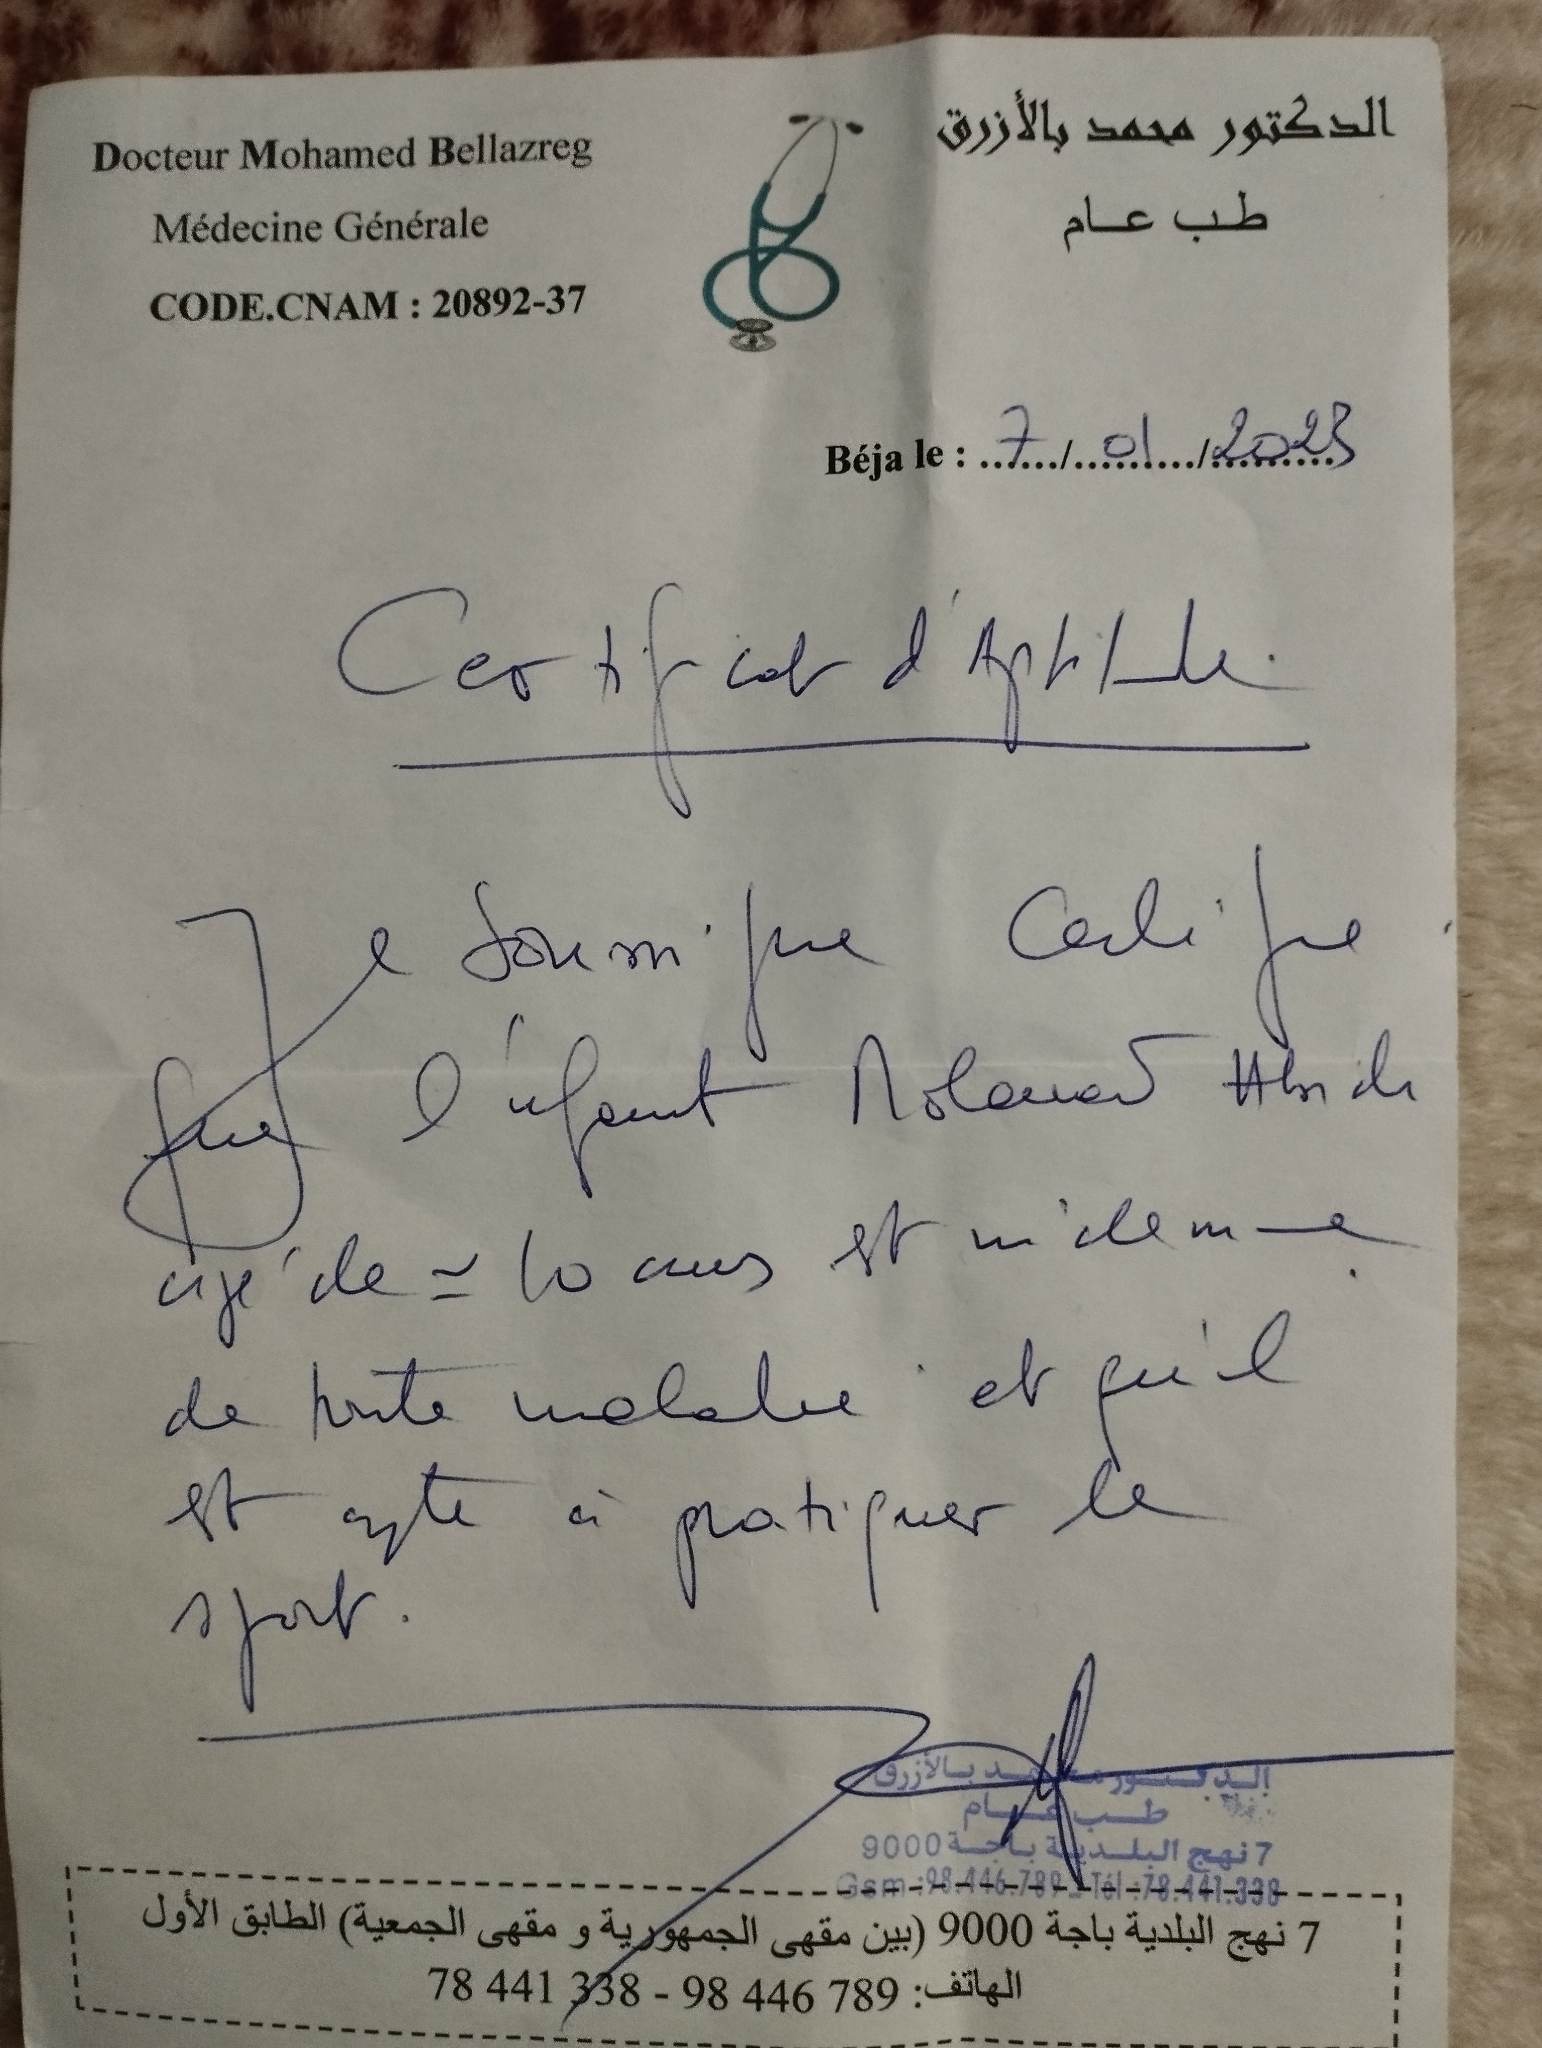 Docteur Mohamed Bellazreg
Médecine Générale
CODE.CNAM : 20892-37
الدكتور محمد بالأزرق
طب عام
Béja le : 7/01/2023
Certificat d'Aptitude
Je soussigné certifie
que l'enfant Mohamed
agé de ≃ 10 ans est indemne
de toute maladie et qu'il
est apte à pratiquer le
sport.
الدكتور محمد بالأزرق
طب عام
7 نهج البلدية باجة 9000
Gsm :98.446.789 - Tél :78.441.338
7 نهج البلدية باجة 9000 (بين مقهى الجمهورية و مقهى الجمعية) الطابق الأول
الهاتف: 789 446 98 - 338 441 78